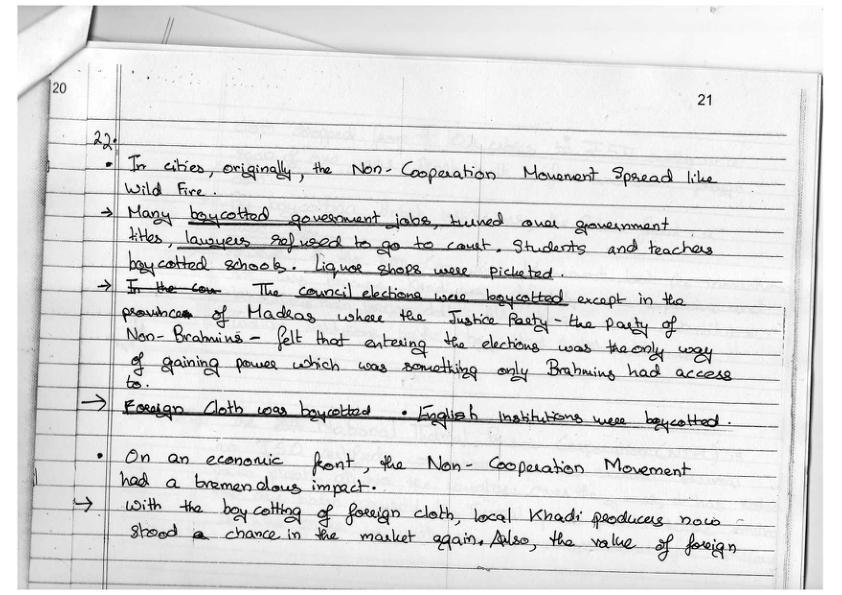 20
21
22.
• In cities, originally, the Non-Cooperation Movement Spread like
Wild Fire.
→ Many boycotted government jobs, turned over government
titles, lawyers refused to go to court. Students and teachers
boycotted schools. Liquor shops were picketed.
→ In the cou The council elections were boycotted except in the
province of Madras where the Justice Party - the party of
Non-Brahmins - felt that entering the elections was the only way
of gaining power which was something only Brahmins had access
to.
→ Foreign Cloth was boycotted. English institutions were boycotted.
• On an economic front, the Non-Cooperation Movement
had a tremendous impact.
→ With the boycotting of foreign cloth, local Khadi producers now
stood a chance in the market again. Also, the value of foreign